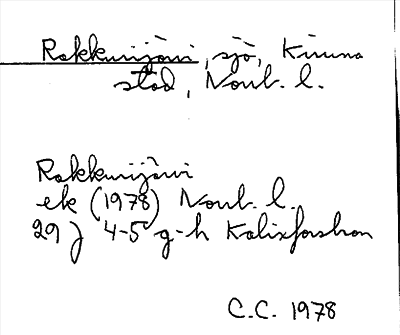 Rakkurijärvi, sjö, Kiruna
stad, Norrb. l.
Rakkurijärvi
ek (1978) Norrb. l.
29 J 4-5 g-h Kalixforsbron
C.C. 1978